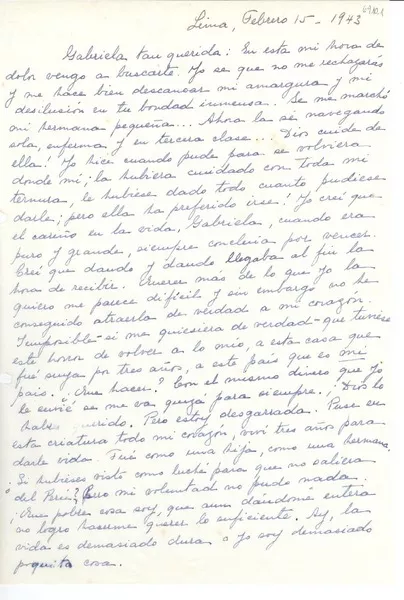 Lima, Febrero 15 - 1943
Gabriela tan querida: En esta mi hora de
dolor vengo a buscarte. Yo se que no me rechazarás
y me hace bien descansar mi amargura y mi
desilusión en tu bondad inmensa. Se me marchó
mi hermana pequeña... Ahora la sé navegando
sola, enferma y en tercera clase... Dios cuide de
ella! Yo hice cuando pude para se volviera
donde mi; la hubiera cuidado con toda mi
ternura, le hubiese dado todo cuanto pudiese
darle; pero ella ha preferido irse! Yo creí que
el cariño en la vida, Gabriela, cuando era
puro y grande, siempre concluía por vencer.
Creí que dando y dando llegaba al fin la
hora de recibir. Querer más de lo que yo la
quiero me parece difícil y sin embargo no he
conseguido atraerla de verdad a mi corazón.
Imposible - si me quisiera de verdad - que tuviese
este horror de volver a lo mio, a esta casa que
fué suya por tres años, a este país que es mi
país. ¿Que hacer? Con el mismo dinero que yo
le envié se me va quizá para siempre. ¡Dios lo
habrá querido. Pero estoy desgarrada. Puse en
esta criatura todo mi corazón, viví tres años para
darle vida. Fué como una hija, como una hermana.
¡Si hubieses visto como luché para que no saliera
del Perú? Pero mi voluntad no pudo nada.
¡Que pobre cosa soy, que aun dándome entera
no logro hacerme querer lo suficiente. Ay, la
vida es demasiado dura o yo soy demasiado
poquita cosa.